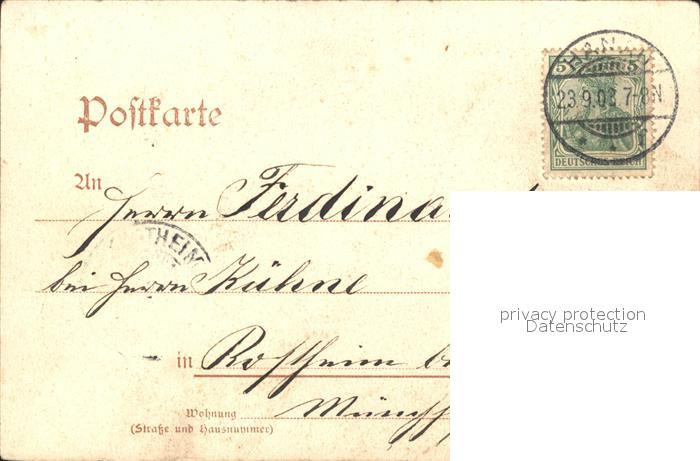 HANAU
5 5
23.9.03 7-8N
DEUTSCHES REICH
Postkarte
An
Herrn Ferdina
THEIM
bei Herrn Kühne
in Rossheim b
Wohnung
(Straße und Hausnummer)
privacy protection
Datenschutz